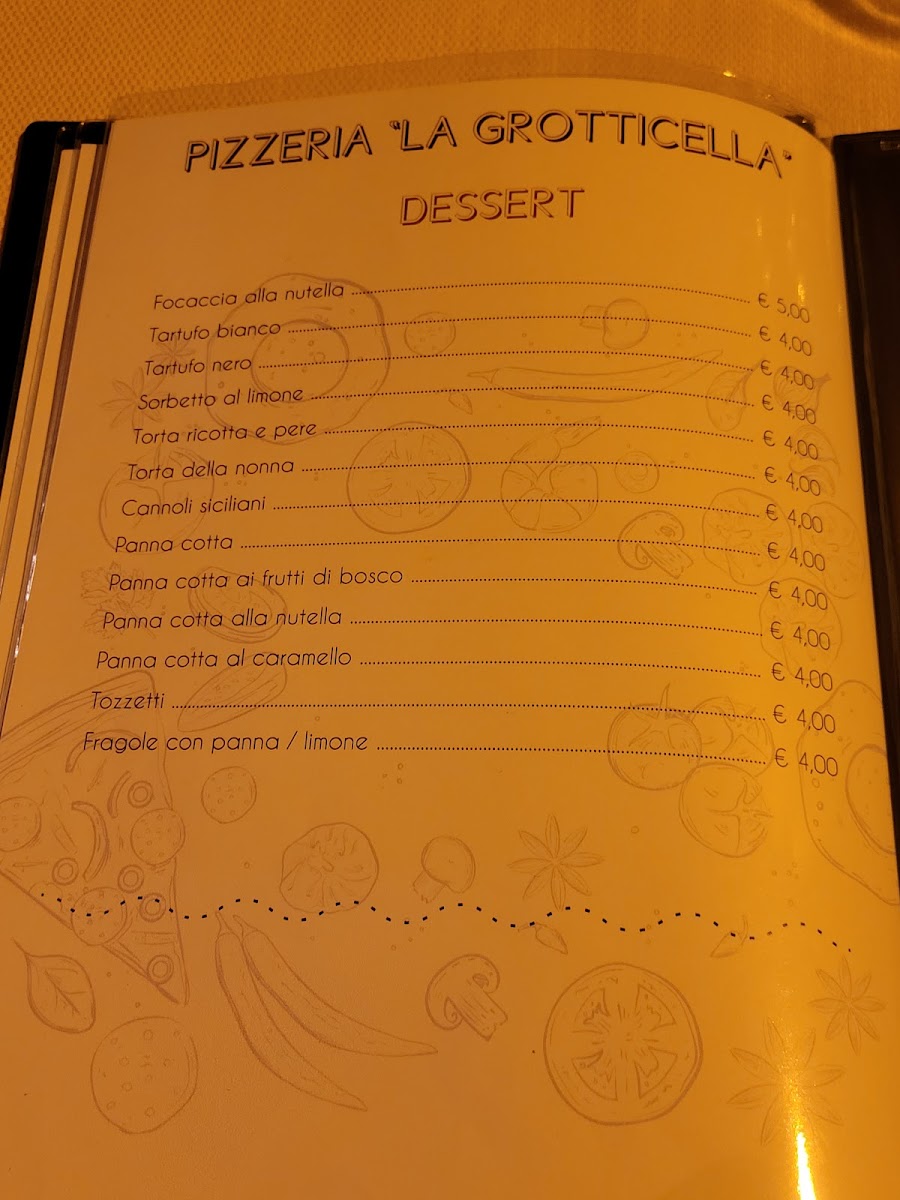 PIZZERIA "LA GROTTICELLA"
DESSERT
Focaccia alla nutella € 5,00
Tartufo bianco € 4,00
Tartufo nero € 4,00
Sorbetto al limone € 4,00
Torta ricotta e pere € 4,00
Torta della nonna € 4,00
Cannoli siciliani € 4,00
Panna cotta € 4,00
Panna cotta ai frutti di bosco € 4,00
Panna cotta alla nutella € 4,00
Panna cotta al caramello € 4,00
Tozzetti € 4,00
Fragole con panna / limone € 4,00